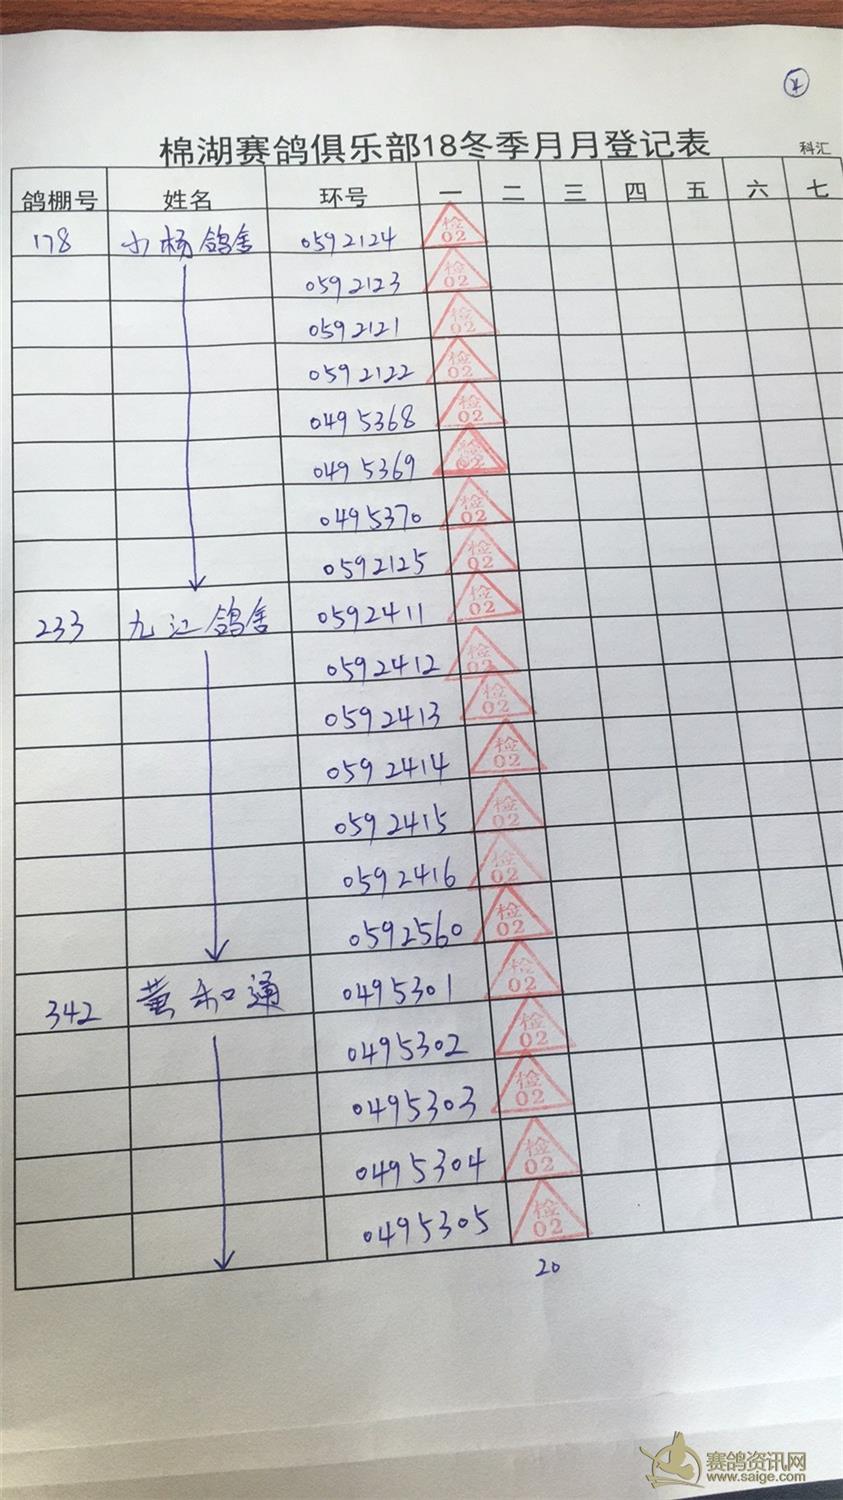 棉湖赛鸽俱乐部18冬季月月登记表
科汇
鸽棚号 姓名 环号 一 二 三 四 五 六 七
178 小杨鸽舍 0592124 检02
0592123 检02
0592121 检02
0592122 检02
0495368 检02
0495369 检02
0495370 检02
0592125 检02
233 九江鸽舍 0592411 检02
0592412 检02
0592413 检02
0592414 检02
0592415 检02
0592416 检02
0592560 检02
342 黄和通 0495301 检02
0495302 检02
0495303 检02
0495304 检02
0495305 检02
20
赛鸽资讯网
www.saige.com